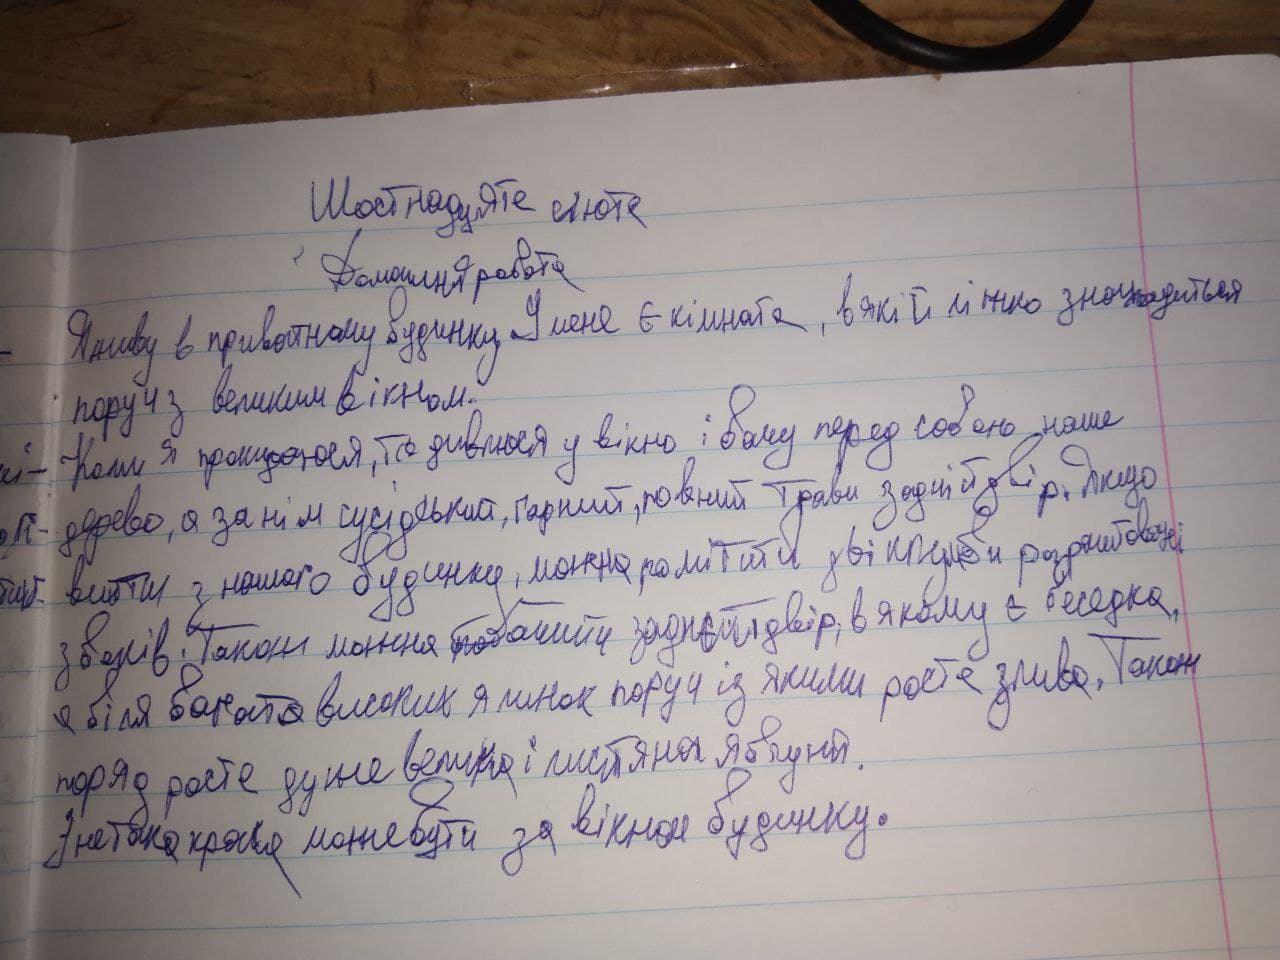 Шостнадцяте люте
Домашня робота
Я живу в приватному будинку. У мене є кімната, в якій ліжко знаходиться
поруч з великим вікном.
Коли я прокидаюся, то дивлюся у вікно і бачу перед собою наше
дерево, а за нім сусідський, гарний, повний трави задній двір. Якщо
вийти з нашого будинку, можна помітити розташовані
з боків. Також можна побачити задній двір, в якому є беседка,
а біля багато високих ялинок поруч із якими росте злива. Також
поряд росте дуже велика і листяна яблуня.
І не така краса може бути за вікном будинку.